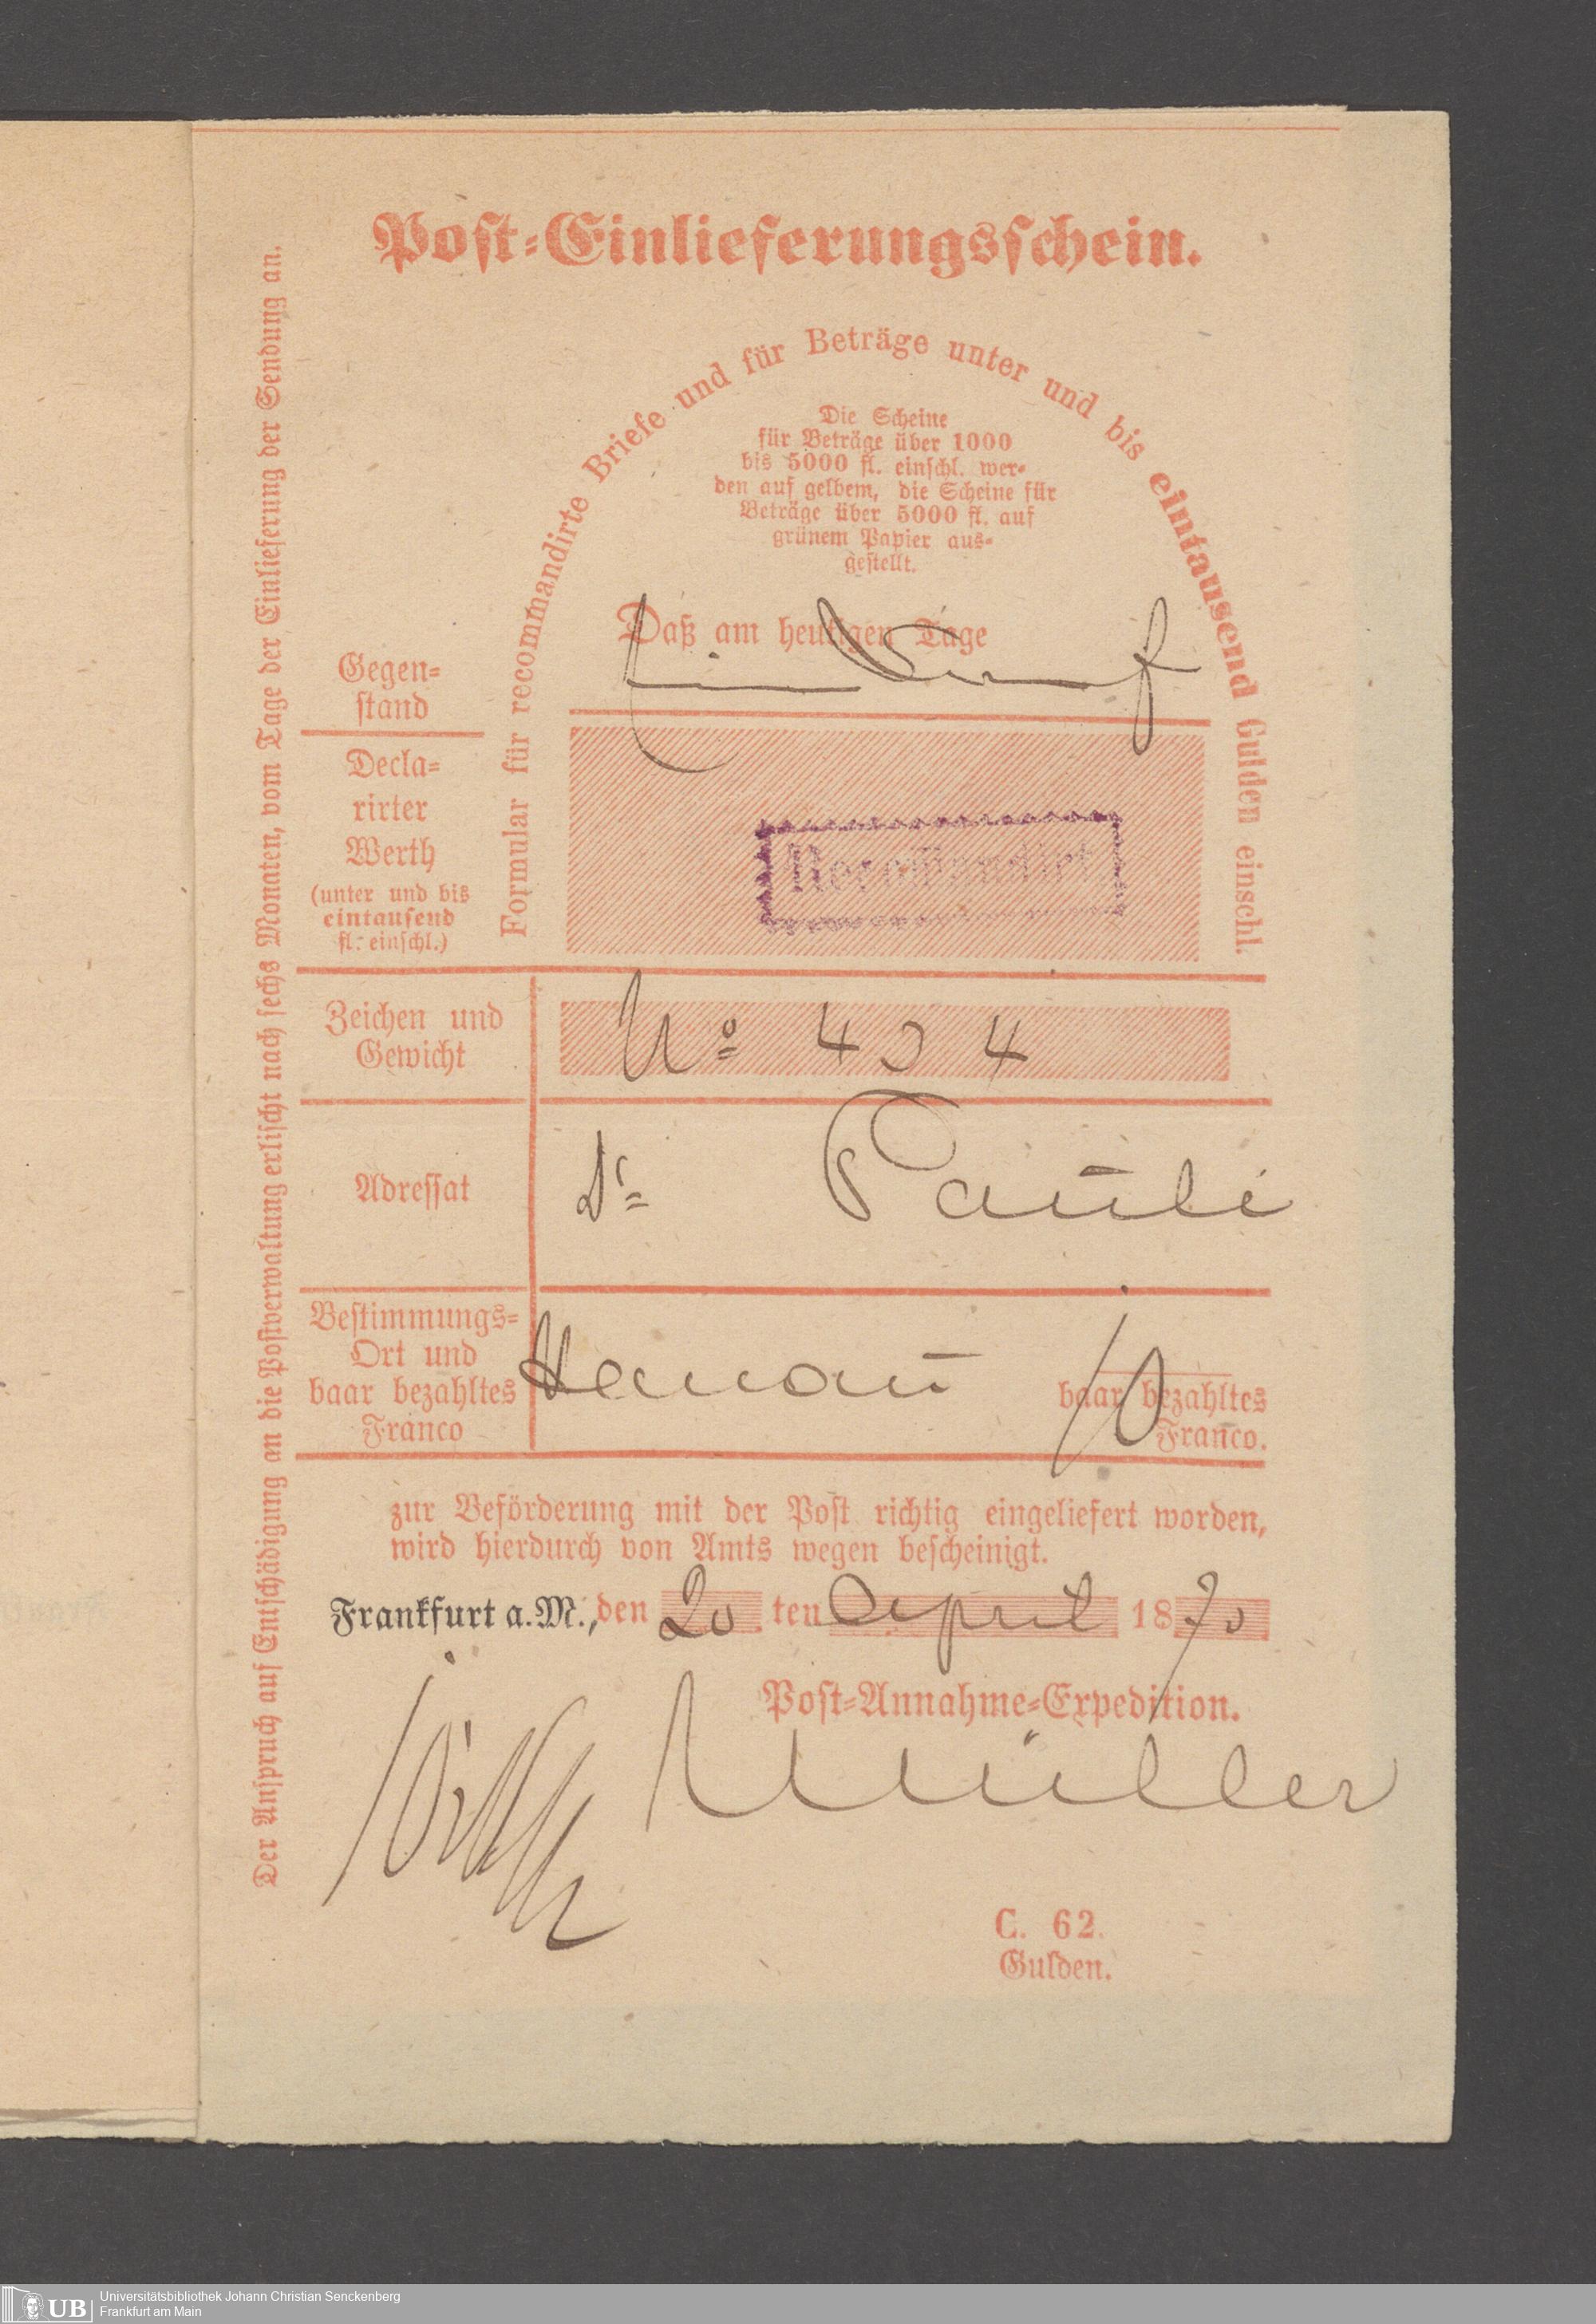 Post-Einlieferungsschein.
Formular für recommandirte Briefe und für Beträge unter und bis eintausend Gulden einschl.
Die Scheine
für Beträge über 1000
bis 5000 fl. einschl. wer-
den auf gelbem, die Scheine für
Beträge über 5000 fl. auf
grünem Papier aus-
gestellt.
Daß am heutigen Tage
Gegen-
stand
Ein Brief
Decla-
rirter
Werth
(unter und bis
eintausend
fl. einschl.)
Recommandirt
Zeichen und
Gewicht
No 404
Adressat
Dr Pauli
Bestimmungs-
Ort und
baar bezahltes
Franco
Hanau
baar bezahltes
Franco.
zur Beförderung mit der Post richtig eingeliefert worden,
wird hierdurch von Amts wegen bescheinigt.
Frankfurt a. M., den 20 ten April 1870
Post-Annahme-Expedition.
Müller
C. 62.
Gulden.
Der Anspruch auf Entschädigung an die Postverwaltung erlischt nach sechs Monaten, vom Tage der Einlieferung der Sendung an.
UB
Universitätsbibliothek Johann Christian Senckenberg
Frankfurt am Main